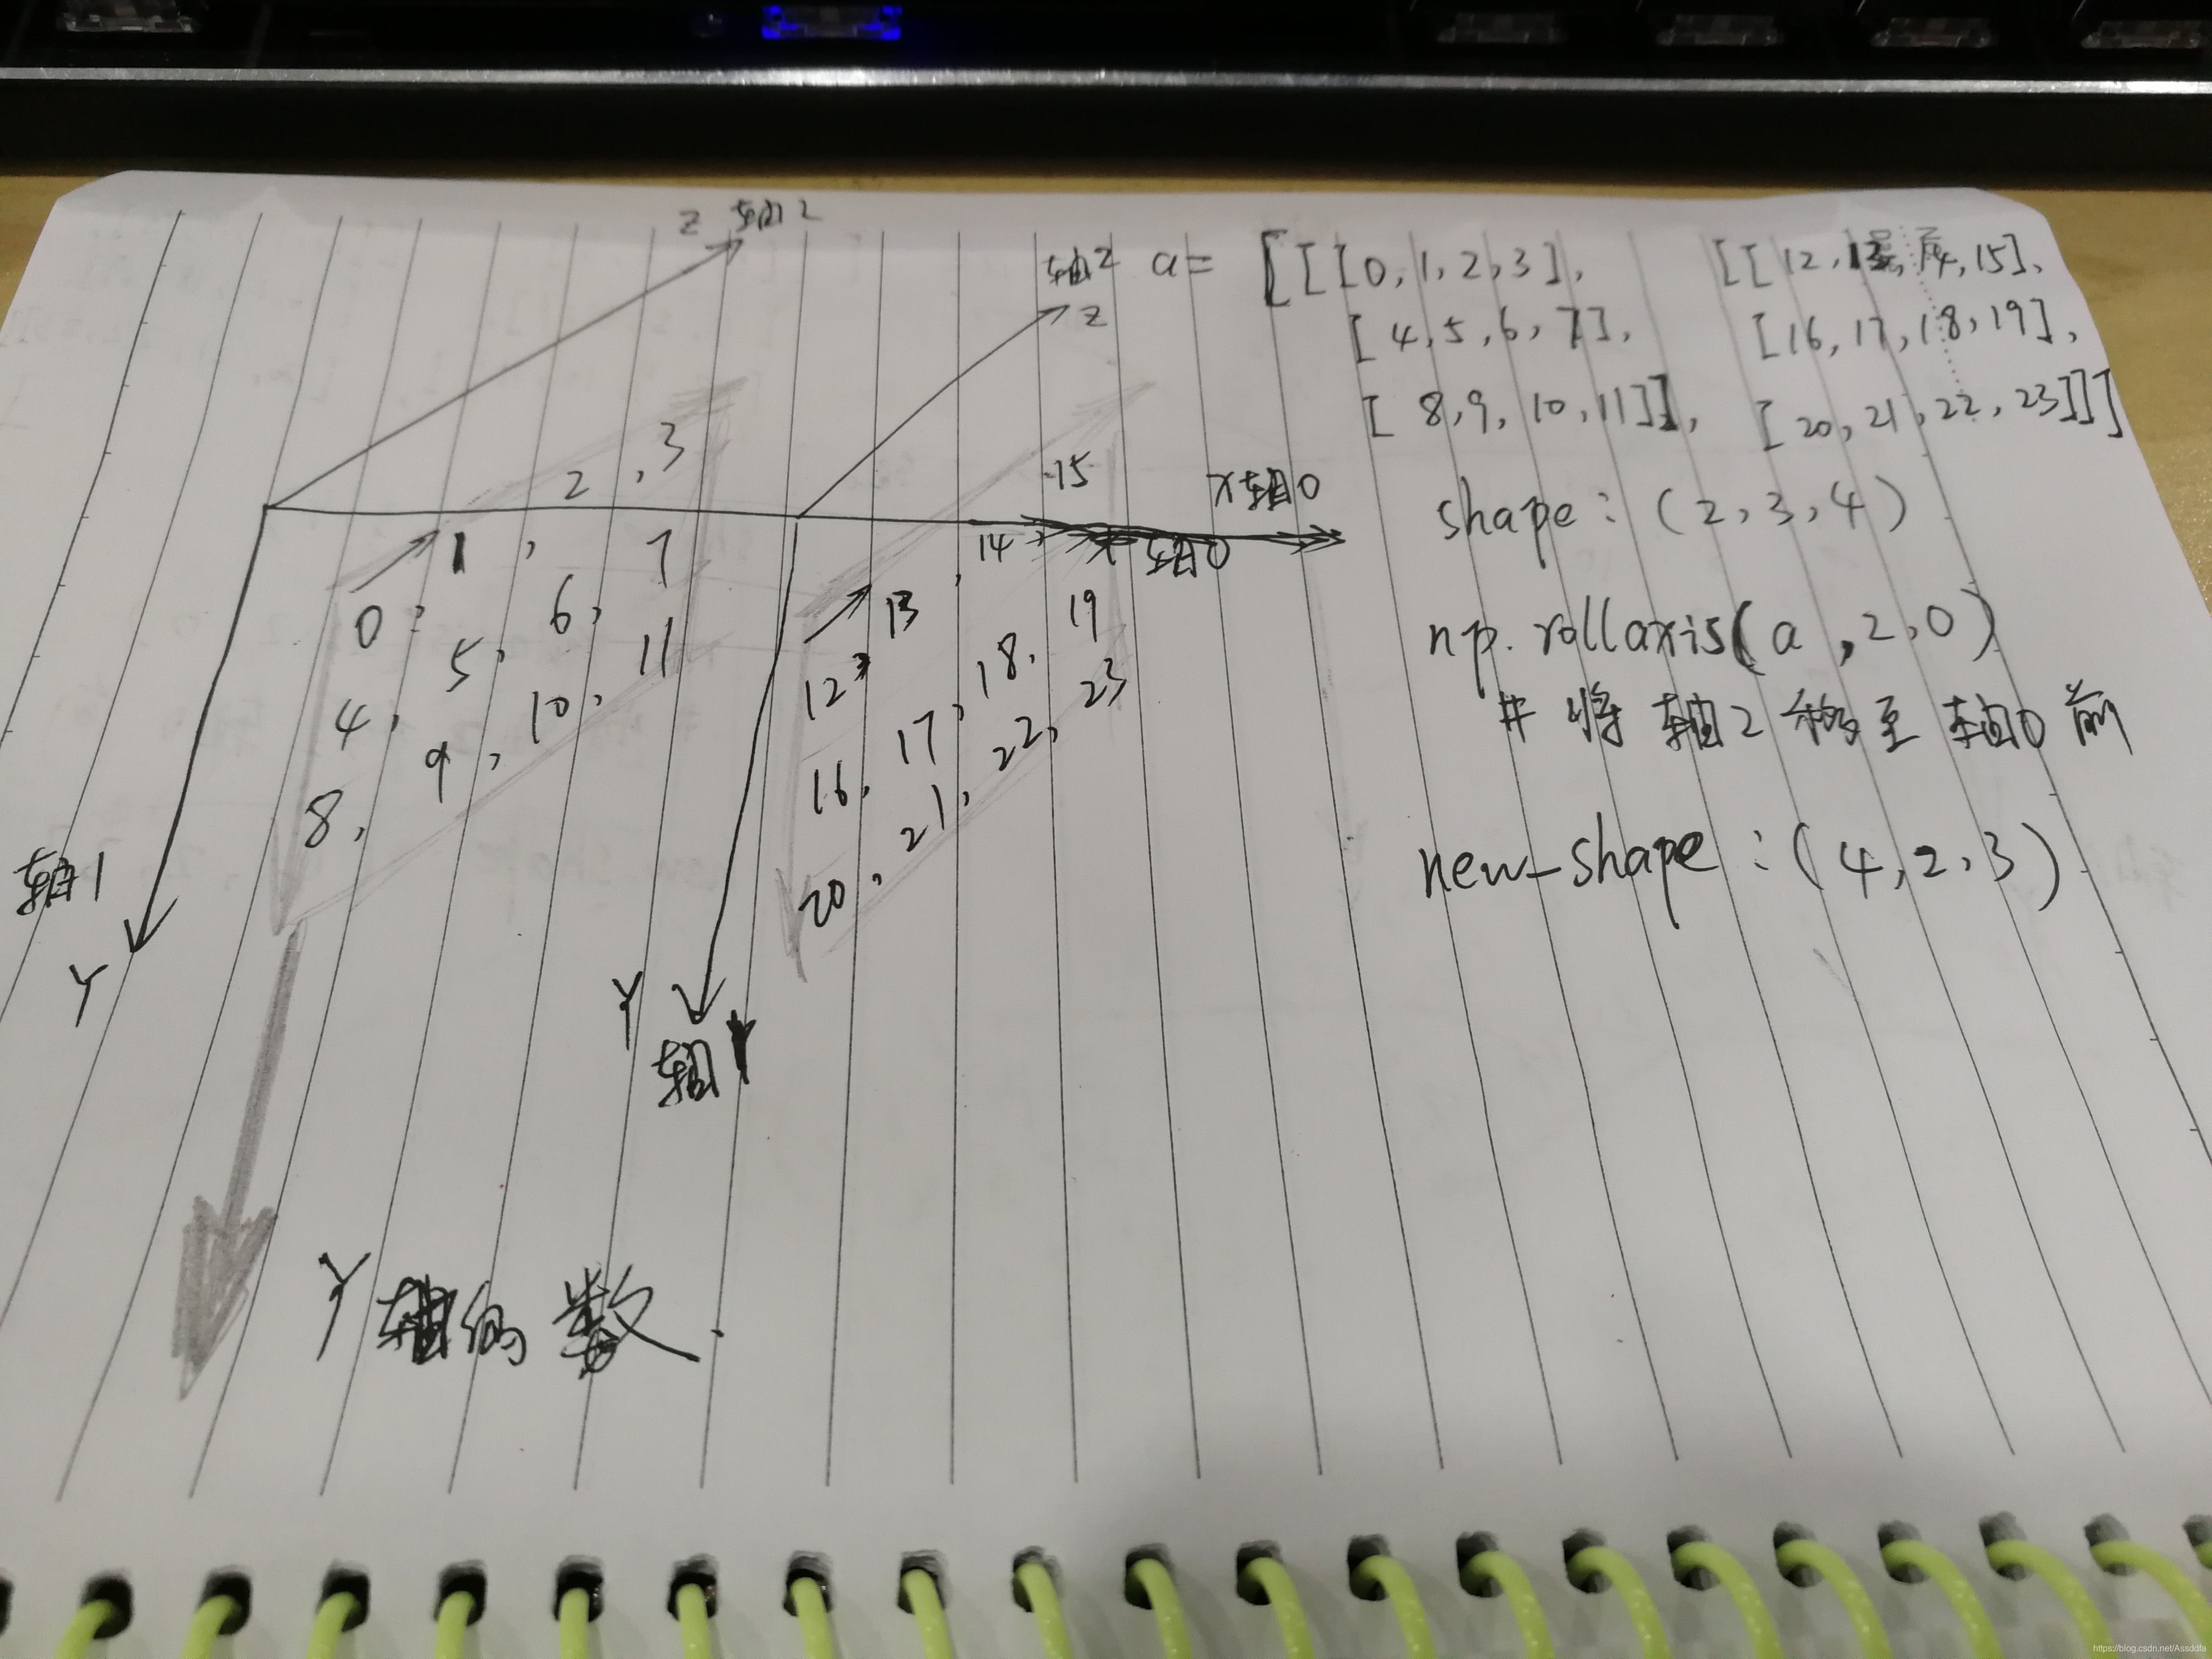 z 轴2
轴2
z
a= [[[0,1,2,3], [[12,13,14,15],
[4,5,6,7], [16,17,18,19],
[8,9,10,11]], [20,21,22,23]]]
shape: (2,3,4)
np.rollaxis(a,2,0)
# 将轴2移至轴0前
new_shape:(4,2,3)
x轴0
轴0
0, 1, 2, 3
4, 5, 6, 7
8, 9, 10, 11
12, 13, 14, 15
16, 17, 18, 19
20, 21, 22, 23
轴1
Y
Y
轴1
Y轴的数
https://blog.csdn.net/Assddfa